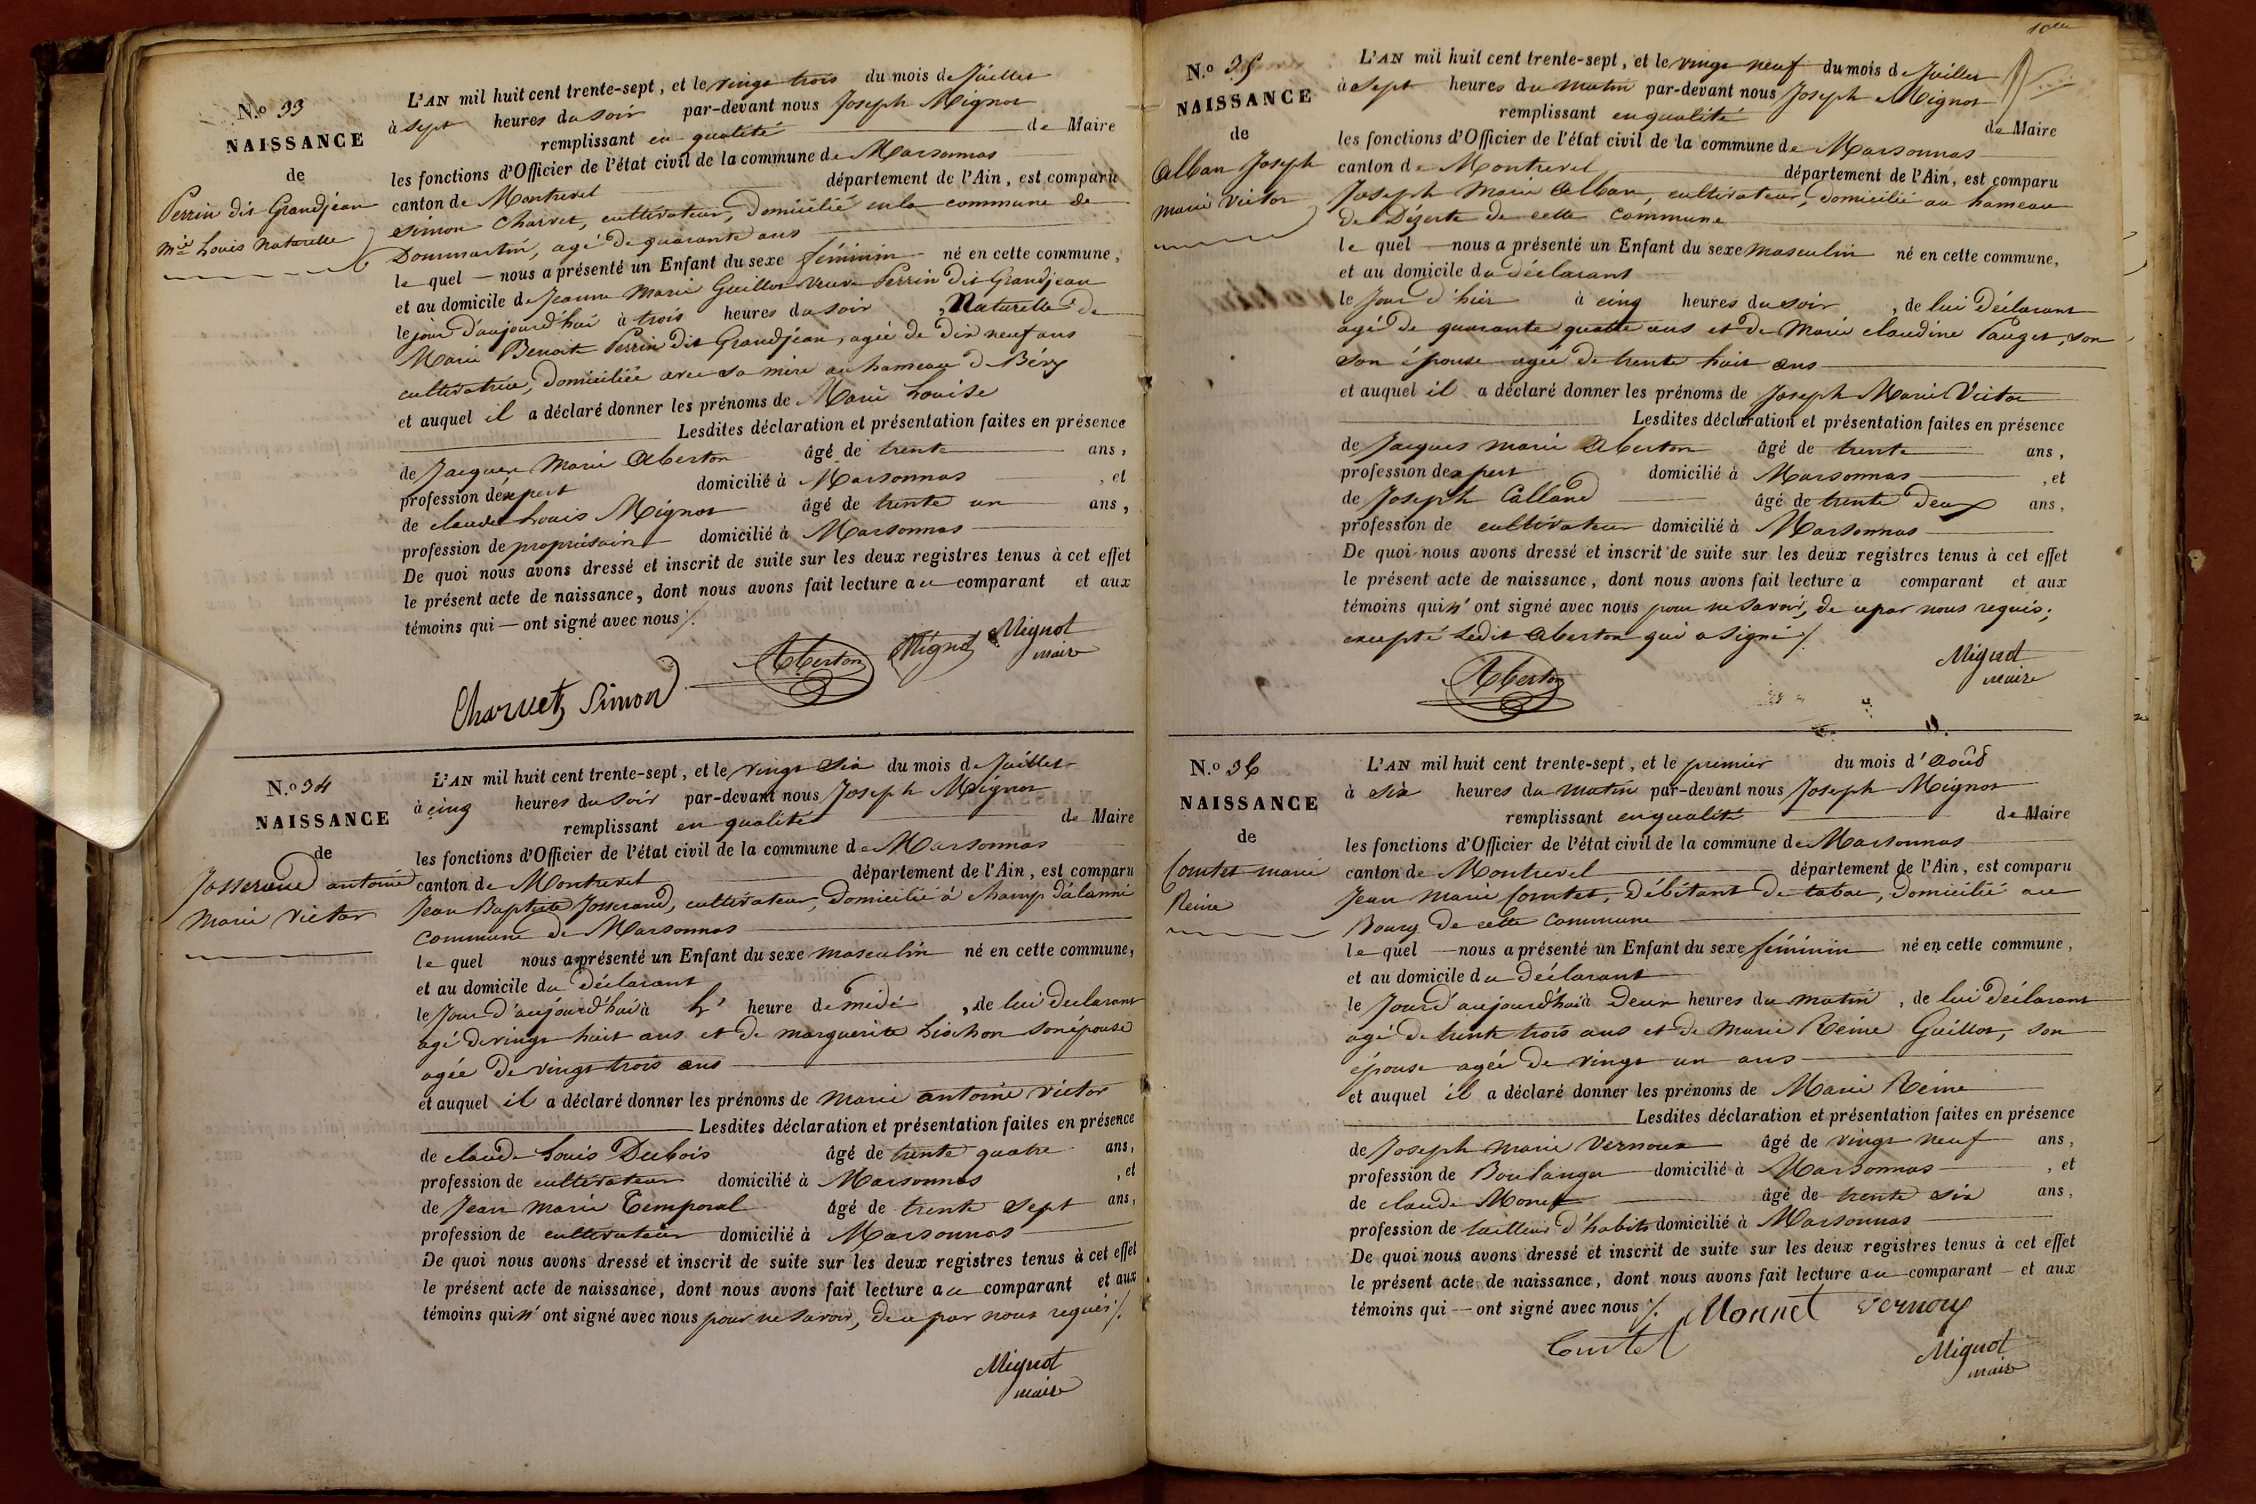 N.o 33
NAISSANCE
de
Perrin dit Grandjean
Mie Louis Naturelle
L'AN mil huit cent trente-sept, et le vingt trois du mois de Juillet
à Sept heures du soir par-devant nous Joseph Mignot
remplissant en qualité de Maire
les fonctions d'Officier de l'état civil de la commune de Marsonnas
canton de Montrevel département de l'Ain, est comparu
Simon Charvet, cultivateur, domicilié en la commune de
Dommartin, agé de quarante ans
le quel nous a présenté un Enfant du sexe féminin né en cette commune,
et au domicile de Jeanne Marie Guillot veuve Perrin dit Grandjean
le jour d'aujourd'hui à trois heures du soir, Naturelle de
Marie Benoite Perrin dit Grandjean, agée de dix neuf ans
cultivatrice, domiciliée avec sa mère au hameau de Béry
et auquel il a déclaré donner les prénoms de Marie Louise
Lesdites déclaration et présentation faites en présence
de Jacques Marie Aberton âgé de trente ans,
profession d'expert domicilié à Marsonnas, et
de claude Louis Mignot âgé de trente un ans,
profession de propriétaire domicilié à Marsonnas
De quoi nous avons dressé et inscrit de suite sur les deux registres tenus à cet effet
le présent acte de naissance, dont nous avons fait lecture au comparant et aux
témoins qui — ont signé avec nous /.
Aberton Mignot Mignot
maire
Charvet Simon
N.o 34
NAISSANCE
de
Josserand antoine
Marie Victor
L'AN mil huit cent trente-sept, et le vingt Six du mois de Juillet
à cinq heures du Soir par-devant nous Joseph Mignot
remplissant en qualité de Maire
les fonctions d'Officier de l'état civil de la commune de Marsonnas
canton de Montrevel département de l'Ain, est comparu
Jean Baptiste Josserand, cultivateur, domicilié à champ d'alanni
commune de Marsonnas
le quel nous a présenté un Enfant du sexe masculin né en cette commune,
et au domicile du déclarant
le Jour d'aujourd'hui à l' heure de midi, de lui declarant
agé de vingt huit ans et de marguerite Lischon son épouse
agée de vingt trois ans
et auquel il a déclaré donner les prénoms de Marie antoine Victor
Lesdites déclaration et présentation faites en présence
de claude Louis Dubois âgé de trente quatre ans,
profession de cultivateur domicilié à Marsonnas, et
de Jean Marie Temporal âgé de trente Sept ans,
profession de cultivateur domicilié à Marsonnas
De quoi nous avons dressé et inscrit de suite sur les deux registres tenus à cet effet
le présent acte de naissance, dont nous avons fait lecture au comparant et aux
témoins qui n'ont signé avec nous pour ne Savoir, de ce par nous requis /.
Mignot
maire
N.o 35
NAISSANCE
de
Alban Joseph
Marie Victor
L'AN mil huit cent trente-sept, et le vingt neuf du mois de Juillet
à Sept heures du Matin par-devant nous Joseph Mignot
remplissant en qualité de Maire
les fonctions d'Officier de l'état civil de la commune de Marsonnas
canton de Montrevel département de l'Ain, est comparu
Joseph Marie Alban, cultivateur, domicilié au hameau
de Dézerte de cette commune
le quel — nous a présenté un Enfant du sexe masculin né en cette commune,
et au domicile du déclarant
le Jour d'hier à cinq heures du soir, de lui déclarant
agé de quarante quatre ans et de Marie claudine Pauget, son
son épouse agée de trente huit ans
et auquel il a déclaré donner les prénoms de Joseph Marie Victor
Lesdites déclaration et présentation faites en présence
de Jacques Marie Aberton âgé de trente ans,
profession d'expert domicilié à Marsonnas, et
de Joseph Calland âgé de trente deux ans,
profession de cultivateur domicilié à Marsonnas
De quoi nous avons dressé et inscrit de suite sur les deux registres tenus à cet effet
le présent acte de naissance, dont nous avons fait lecture a comparant et aux
témoins qui n'ont signé avec nous pour ne Savoir, de ce par nous requis,
excepté Ledit Aberton qui a Signé /.
Mignot
maire
Aberton
N.o 36
NAISSANCE
de
Comtet marie
Reine
L'AN mil huit cent trente-sept, et le premier du mois d'Août
à Six heures du Matin par-devant nous Joseph Mignot
remplissant en qualité de Maire
les fonctions d'Officier de l'état civil de la commune de Marsonnas
canton de Montrevel département de l'Ain, est comparu
Jean Marie Comtet, Débitant de tabac, domicilié au
Bourg de cette commune
le quel — nous a présenté un Enfant du sexe féminin né en cette commune,
et au domicile du déclarant
le Jour d'aujourd'hui à Deux heures du matin, de lui déclarant
agé de trente trois ans et de Marie Reine Guillot, son
épouse agée de vingt un ans
et auquel il a déclaré donner les prénoms de Marie Reine
Lesdites déclaration et présentation faites en présence
de Joseph Marie Vernoux âgé de vingt neuf ans,
profession de Boulanger domicilié à Marsonnas, et
de claude Monet âgé de trente Six ans,
profession de tailleur d'habits domicilié à Marsonnas
De quoi nous avons dressé et inscrit de suite sur les deux registres tenus à cet effet
le présent acte de naissance, dont nous avons fait lecture au comparant et aux
témoins qui — ont signé avec nous /. Monnet Vernoux
Comtet
Mignot
maire